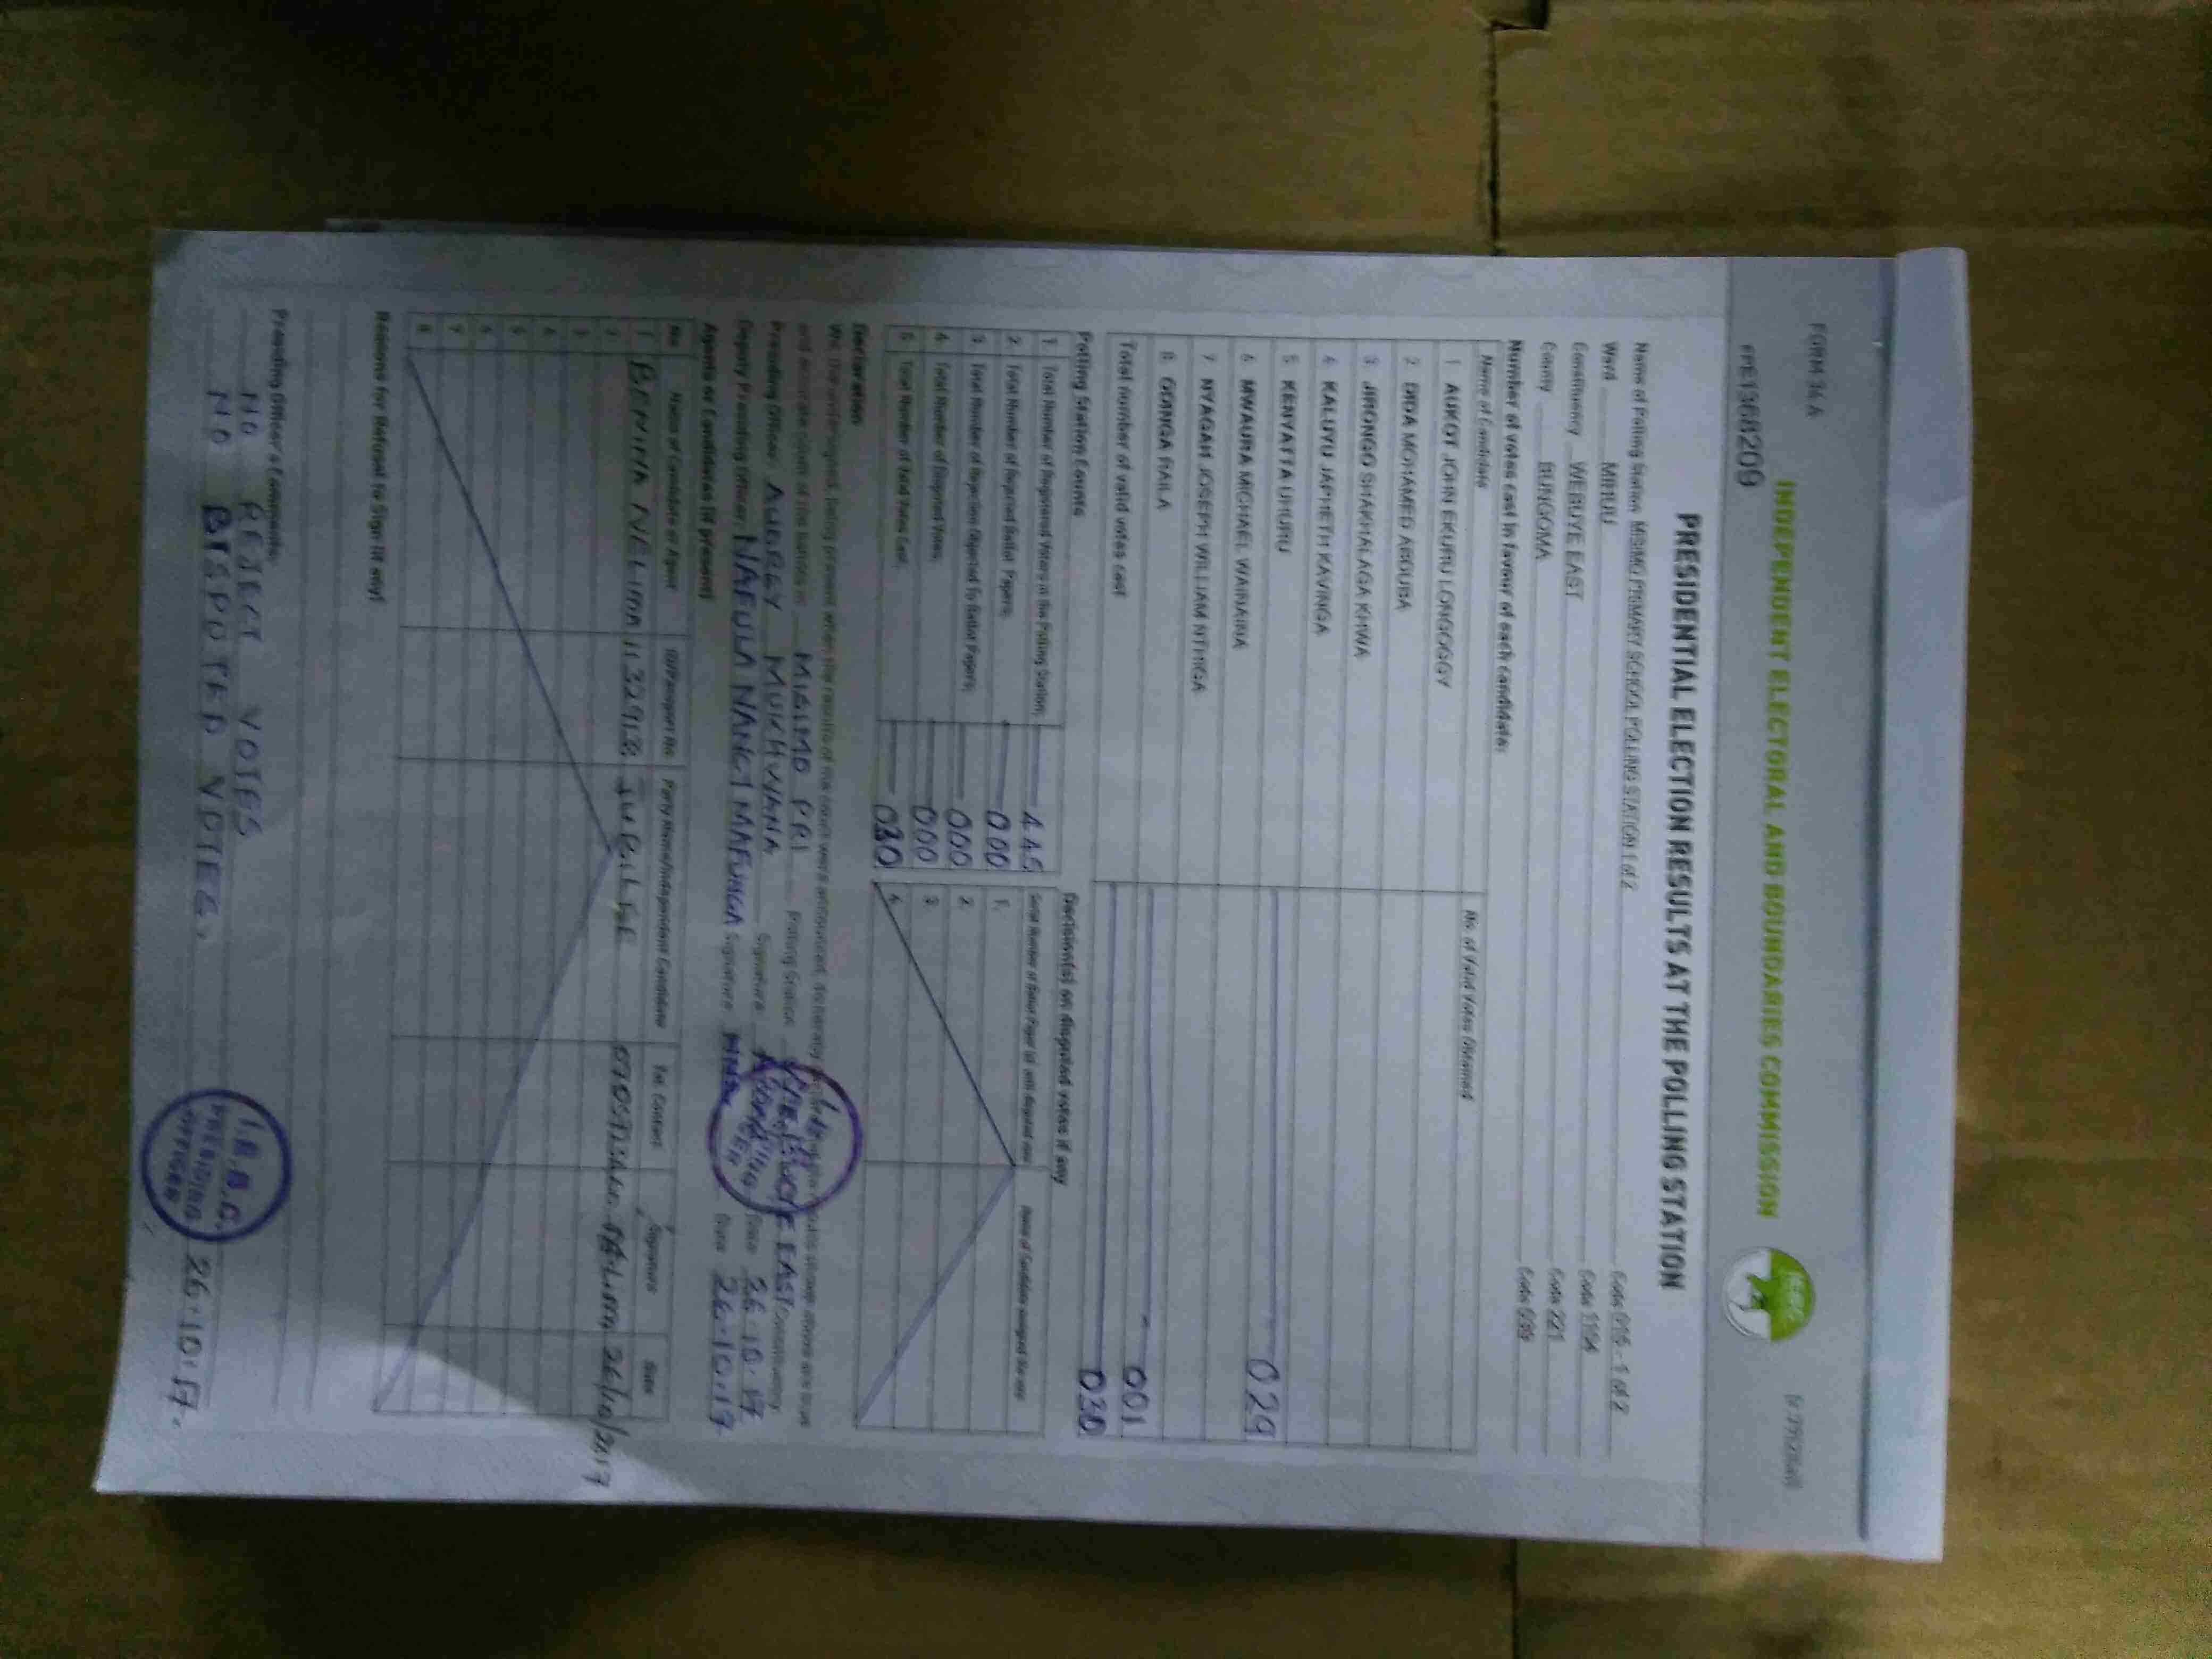 FORM 34 A
INDEPENDENT ELECTORAL AND BOUNDARIES COMMISSION
PRESIDENTIAL ELECTION RESULTS AT THE POLLING STATION
Name of Polling Station MISIMO PRIMARY SCHOOL POLLING STATION 1 of 2
Ward MIHUU
Constituency WEBUYE EAST Code
County BUNGOMA Code 039
Number of votes cast in favour of each candidate:
Name of Candidate No. of Valid Votes Obtained
1 AUKOT JOHN EKURU LONGOGGY
2 DIDA MOHAMED ABDUBA
3 JIRONGO SHAKHALAGA KHWA
4 KALUYU JAPHETH KAVINGA
5 KENYATTA UHURU 029
6 MWAURA MICHAEL WAINAINA
7 NYAGAH JOSEPH WILLIAM NTHIGA
8 ODINGA RAILA 001
Total number of valid votes cast 030
Polling Station Counts
1. Total Number of Registered Voters in the Polling Station; 445
2. Total Number of Rejected Ballot Papers; 000
3. Total Number of Rejection Objected To Ballot Papers; 000
4. Total Number of Disputed Votes; 000
5. Total Number of Valid Votes Cast; 030
Decision(s) on disputed votes if any
1.
2.
3.
4.
Declaration
MISIMO PRI Polling Station EAST Constituency
Presiding Officer; AUDREY MUKHWANA Signature Date 26.10.17
Deputy Presiding Officer; NAFULA NANCY MAFUNGA Signature Date 26.10.17
Agents or Candidates (if present)
No. Name of Candidate or Agent ID/Passport No. Party Name/Independent Candidate Tel. Contact Signature Date
1 BENINA NELIMA 11332918 JUBILEE 26/10/2017
2
3
4
5
6
7
8
Reasons for Refusal to Sign (if any)
Presiding Officer's Comments
NO REJECT VOTES
NO DISPUTED VOTES.
I.E.B.C.
PRESIDING
OFFICER
26.10.17.